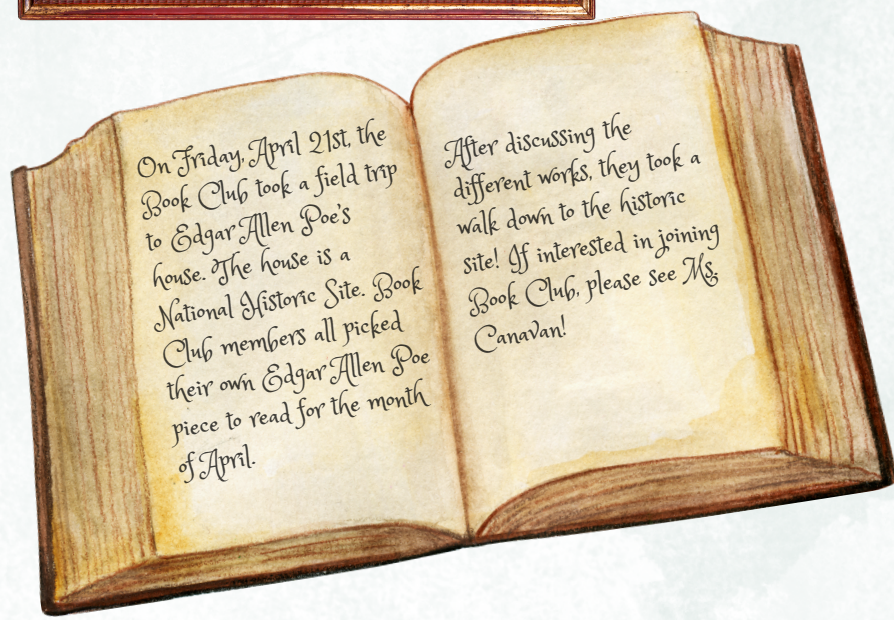 On Friday, April 21st, the
Book Club took a field trip
to Edgar Allen Poe's
house. The house is a
National Historic Site. Book
Club members all picked
their own Edgar Allen Poe
piece to read for the month
of April.
After discussing the
different works, they took a
walk down to the historic
site! If interested in joining
Book Club, please see Ms.
Canavan!